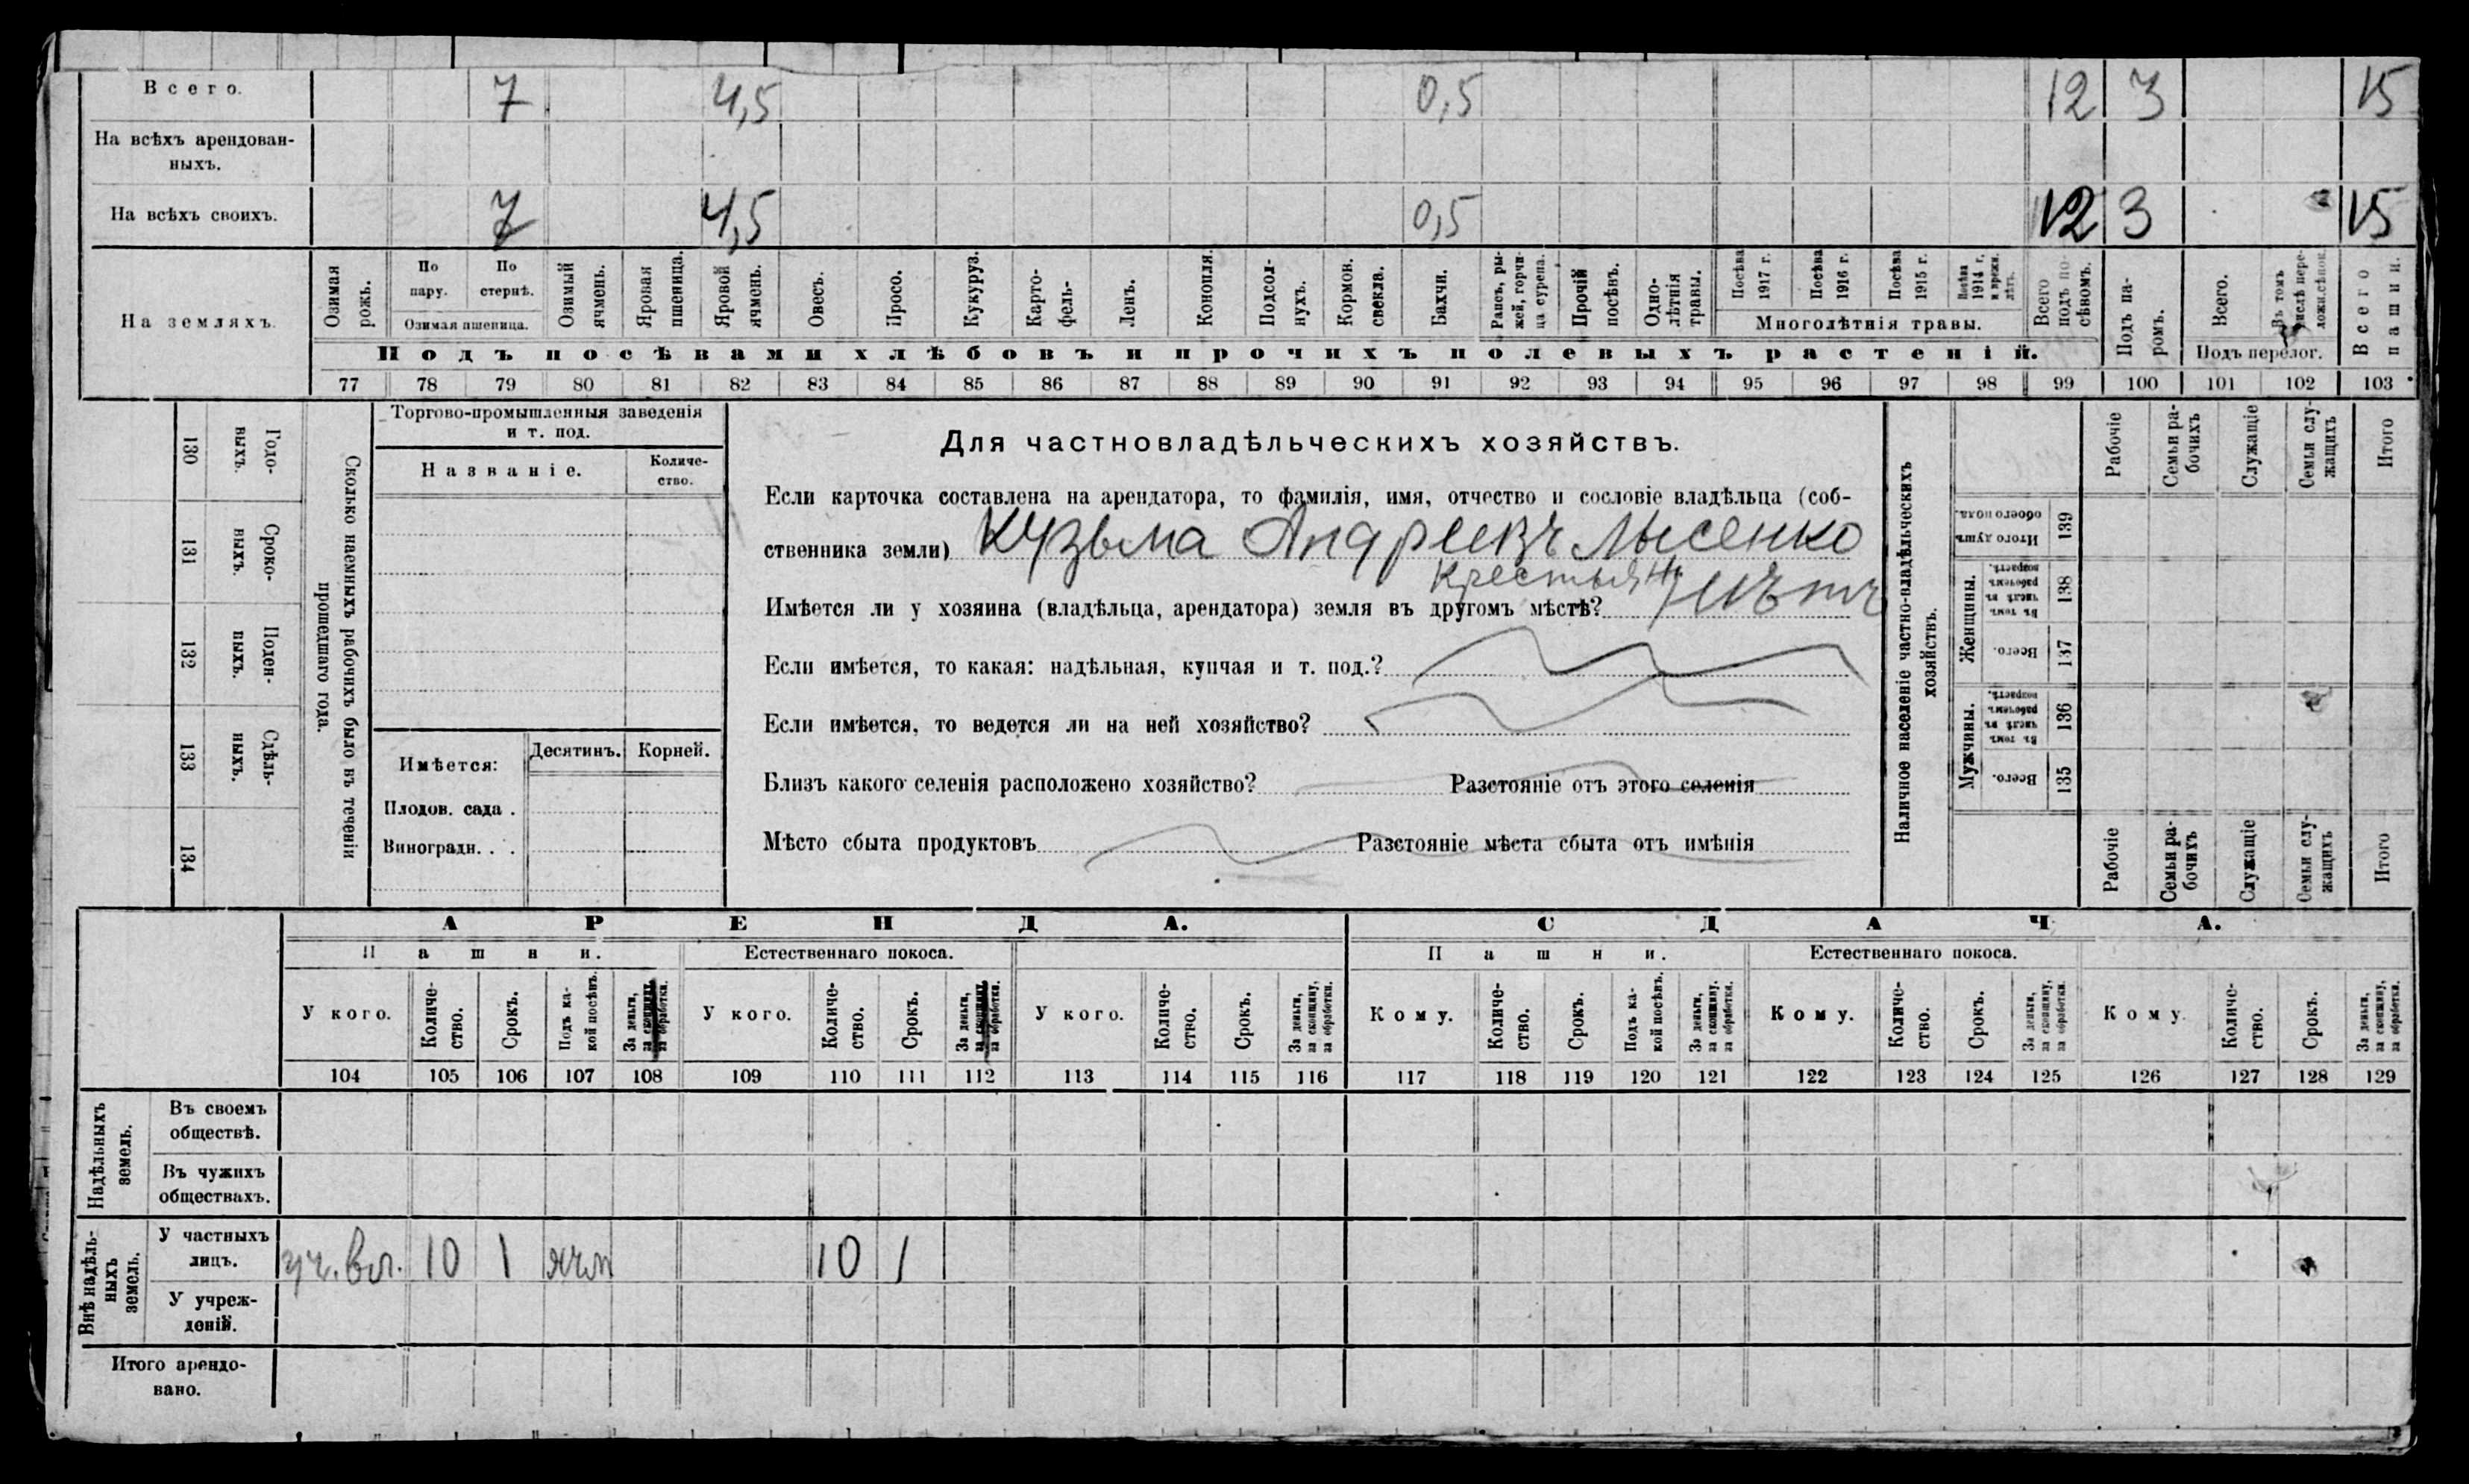 Всего. 7 4,5 0,5 12 3 15
На всѣхъ арендован-
ныхъ.
На всѣхъ своихъ. 7 4,5 0,5 12 3 15
На земляхъ.
Озимая рожь.
По пару.
По стернѣ.
Озимая пшеница.
Озимый ячмень.
Яровая пшеница.
Яровой ячмень.
Овесъ.
Просо.
Кукуруз.
Карто-
фель-
Ленъ.
Конопля.
Подсол-
нухъ.
Кормон.
свекла.
Бахчи.
Рапсъ, ры-
жей, горчи-
ца сурепа.
Прочій
посѣвъ.
Одно-
лѣтнія
травы.
Посѣва
1917 г.
Посѣва
1916 г.
Посѣва
1915 г.
Посѣва
1914 г.
Многолѣтнія травы.
Всего
подъ по-
сѣвомъ.
Подъ па-
ромъ.
Всего.
Въ томъ
числѣ пере-
Подъ перелог.
Всего
пашни.
Подъ посѣвами хлѣбовъ и прочихъ полевыхъ растеній.
77 78 79 80 81 82 83 84 85 86 87 88 89 90 91 92 93 94 95 96 97 98 99 100 101 102 103
130
Годо-
выхъ.
131
Сроко-
выхъ.
132
Поден-
ныхъ.
133
Сдѣль-
ныхъ.
134
Сколько наемныхъ рабочихъ было въ теченіи
прошедшаго года.
Торгово-промышленныя заведенія
и т. под.
Названіе.
Количе-
ство.
Имѣется: Десятинъ. Корней.
Плодов. сада .
Виноградн. . .
Для частновладѣльческихъ хозяйствъ.
Если карточка составлена на арендатора, то фамилія, имя, отчество и сословіе владѣльца (соб-
ственника земли) Кузьма Андреевъ Лысенко
Крестьян
Имѣется ли у хозяина (владѣльца, арендатора) земля въ другомъ мѣстѣ? нѣтъ
Если имѣется, то какая: надѣльная, купчая и т. под.?
Если имѣется, то ведется ли на ней хозяйство?
Близъ какого селенія расположено хозяйство? Разстояніе отъ этого селенія
Мѣсто сбыта продуктовъ Разстояніе мѣста сбыта отъ имѣнія
Наличное населеніе частно-владѣльческихъ
хозяйствъ.
Рабочіе
Семьи ра-
бочихъ
Служащіе
Семьи слу-
жащихъ
Итого
Итого душъ
обоего пола.
139
Женщины.
Въ томъ
числѣ въ
рабочемъ
возрастѣ.
138
Всего.
137
Мужчины.
Въ томъ
числѣ въ
рабочемъ
возрастѣ.
136
Всего.
135
Рабочіе
Семьи ра-
бочихъ
Служащіе
Семьи слу-
жащихъ
Итого
АРЕНДА. СДАЧА.
Пашни. Естественнаго покоса. Пашни. Естественнаго покоса.
У кого.
Количе-
ство.
Срокъ.
Подъ ка-
кой посѣвъ.
За деньги,
за скопщину,
за обработки.
У кого.
Количе-
ство.
Срокъ.
За деньги,
за скопщину,
за обработки.
У кого.
Количе-
ство.
Срокъ.
За деньги,
за скопщину,
за обработки.
Кому.
Количе-
ство.
Срокъ.
Подъ ка-
кой посѣвъ.
За деньги,
за скопщину,
за обработки.
Кому.
Количе-
ство.
Срокъ.
За деньги,
за скопщину,
за обработки.
Кому.
Количе-
ство.
Срокъ.
За деньги,
за скопщину,
за обработки.
104 105 106 107 108 109 110 111 112 113 114 115 116 117 118 119 120 121 122 123 124 125 126 127 128 129
Надѣльныхъ
земель.
Въ своемъ
обществѣ.
Въ чужихъ
обществахъ.
Внѣ надѣль-
ныхъ
земель.
У частныхъ
лицъ. уч. вл. 10 1 ячм 10 1
У учреж-
деній.
Итого арендо-
вано.